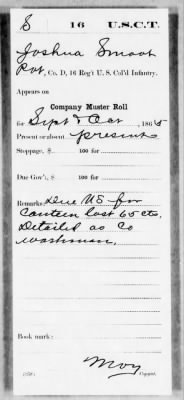 S 16 U.S.C.T.
Joshua Smoot
Pvt, Co. D, 16 Reg't U. S. Col'd Infantry.
Appears on
Company Muster Roll
for Sept & Oct, 1865
Present or absent present
Stoppage, $ 100 for
Due Gov't, $ 100 for
Remarks: Due US for
Canteen lost 65 cts.
Detailed as Co
washman.
Book mark:
Copyist.